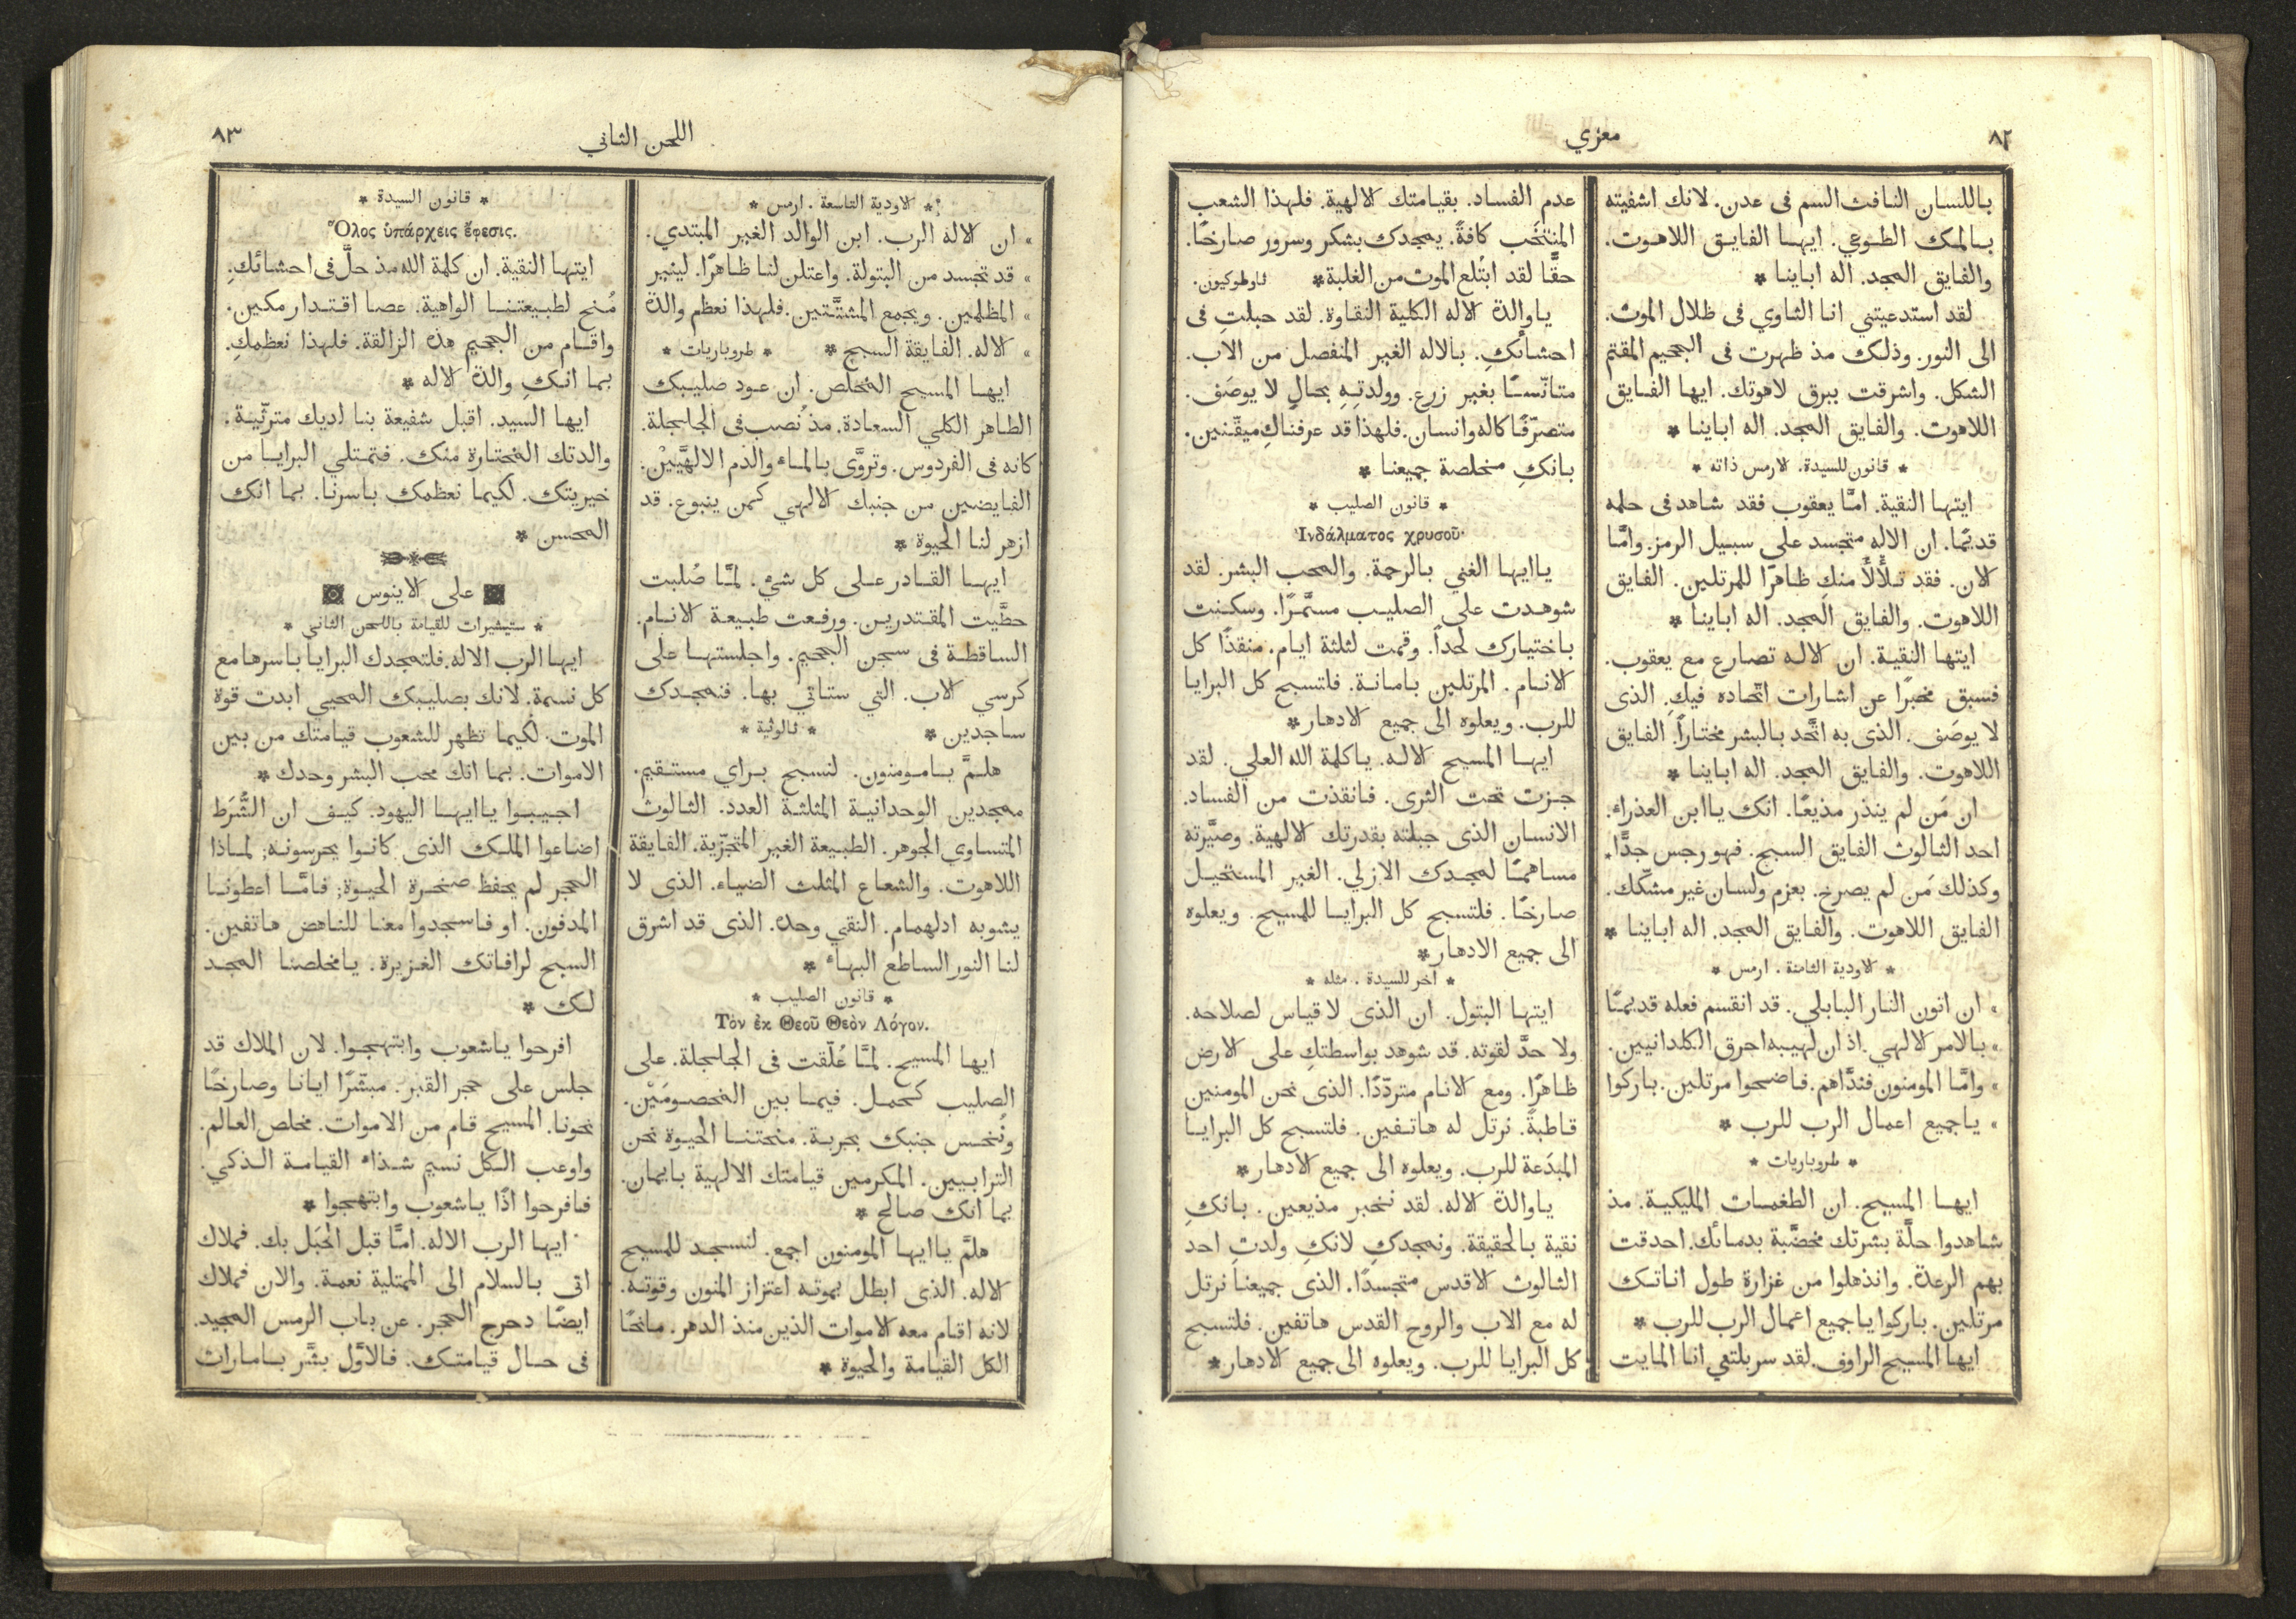 ٨٢
معزي
باللسان النافث السم فى عدن. لانك اشفيته
بالمك الطوعي. ايها الفايق اللاهوت.
والفايق المجد. اله اباينا *
لقد استدعيتني انا الثاوي فى ظلال الموت.
الى النور. وذلك مذ ظهرت فى الجحيم المقتم
الشكل. واشرقت ببرق لاهوتك. ايها الفايق
اللاهوت. والفايق المجد. اله اباينا *
* قانون للسيدة. لارمس ذاته *
ايتها النقية. امَّا يعقوب فقد شاهد فى حلمه
قديمًا. ان الاله متجسد على سبيل الرمز. وامَّا
الان. فقد تلألأ منكِ ظاهرًا للمرتلين. الفايق
اللاهوت. والفايق المجد. اله اباينا *
ايتها النقية. ان الاله تصارع مع يعقوب.
فسبق مخبرًا عن اشارات اتحاده فيكِ. الذى
لا يوصَف. الذى به اتَّحد بالبشر مختاراً. الفايق
اللاهوت. والفايق المجد. اله اباينا *
ان مَن لم ينذر مذيعًا. انك ياابن العذراء.
احد الثالوث الفايق السبح. فهو رجس جدًّا.
وكذلك مَن لم يصرخ. بعزم ولسان غير مشكّك.
الفايق اللاهوت. والفايق المجد. اله اباينا *
* الاودية الثامنة. ارمس *
» ان اتون النار البابلي. قد انقسم فعله قديمًا
» بالامر الالهي. اذ ان لهيبه احرق الكلدانيين.
» وامَّا المومنون فندَّاهم. فاضحوا مرتلين. باركوا
» ياجميع اعمال الرب للرب *
* طروباريات *
ايها المسيح. ان الطغمات المليكية. مذ
شاهدوا حلَّة بشرتك مخضَّبة بدمائك. احدقت
بهم الرعدة. وانذهلوا من غزارة طول اناتك
مرتلين. باركوا ياجميع اعمال الرب للرب *
ايها المسيح الراوف. لقد سربلتني انا المايت
عدم الفساد. بقيامتك الالهية. فلهذا الشعب
المنتخَب كافةً. يمجدك بشكر وسرور صارخًا.
حقًّا لقد ابتُلع الموت من الغلبة * ثاوطوكيون.
ياوالدة الاله الكلية النقاوة. لقد حبلتِ فى
احشائكِ. بالاله الغير المنفصل من الاب.
متانّسًا بغير زرع. وولدتِهِ بحالٍ لا يوصَف.
متصرّفًا كاله وانسان. فلهذا قد عرفناكِ ميقّنين.
بانكِ مخلصة جميعنا *
* قانون الصليب *
Ἰνδάλματος χρυσοῦ·
ياايها الغني بالرحمة. والمحب البشر. لقد
شوهدت على الصليب مسمَّرًا. وسكنت
باختيارك لحداً. وقمت لثلثة ايام. منقذًا كل
الانام. المرتلين بامانة. فلتسبح كل البرايا
للرب. ويعلوه الى جميع الادهار *
ايها المسيح الاله. ياكلمة الله العلي. لقد
جزت تحت الثرى. فانقذت من الفساد.
الانسان الذى جبلته بقدرتك الالهية. وصيَّرته
مساهمًا لمجدك الازلي. الغير المستحيل
صارخًا. فلتسبح كل البرايا للمسيح. ويعلوه
الى جميع الادهار *
* اخر للسيدة. مثله *
ايتها البتول. ان الذى لا قياس لصلاحه.
ولا حدَّ لقوته. قد شوهد بواسطتكِ على الارض
ظاهرًا. ومع الانام متردّدًا. الذى نحن المومنين
قاطبةً. نرتل له هاتفين. فلتسبح كل البرايا
المبدَعة للرب. ويعلوه الى جميع الادهار *
ياوالدة الاله. لقد نخبر مذيعين. بانكِ
نقية بالحقيقة. ونمجدكِ لانكِ ولدتِ احد
الثالوث الاقدس متجسدًا. الذى جميعنا نرتل
له مع الاب والروح القدس هاتفين. فلتسبح
كل البرايا للرب. ويعلوه الى جميع الادهار *
اللحن الثاني
٨٣
* الاودية التاسعة. ارمس *
» ان الاله الرب. ابن الوالد الغير المبتدي.
» قد تجسد من البتولة. واعتلن لنا ظاهرًا. لينير
» المظلمين. ويجمع المشتَّتين. فلهذا نعظم والدة
» الاله. الفايقة السبح * * طروباريات *
ايها المسيح المخلص. ان عود صليبك
الطاهر الكلي السعادة. مذ نُصب فى الجلجلة.
كانه فى الفردوس. وتروَّى بالماء والدم الالهيَّيْن.
الفايضين من جنبك الالهي كمن ينبوع. قد
ازهر لنا الحيوة *
ايها القادر على كل شي. لمَّا صُلبت
حطَّيت المقتدرين. ورفعت طبيعة الانام.
الساقطة فى سجن الجحيم. واجلستها على
كرسي الاب. التي ستاتي بها. فنمجدك
ساجدين * * ثالوثية *
هلمَّ يامومنون. لنسبح براي مستقيم.
ممجدين الوحدانية المثلثة العدد. الثالوث
المتساوي الجوهر. الطبيعة الغير المتجزّية. الفايقة
اللاهوت. والشعاع المثلث الضياء. الذى لا
يشوبه ادلهمام. النقي وحده. الذى قد اشرق
لنا النور الساطع البهاء *
* قانون الصليب *
Τὸν ἐκ Θεοῦ Θεὸν Λόγον.
ايها المسيح. لمَّا عُلّقت فى الجلجلة. على
الصليب كحمل. فيما بين المخصومَيْن.
ونُخس جنبك بحربة. منحتنا الحيوة نحن
الترابيين. المكرمين قيامتك الالهية بايمان.
بما انك صالح *
هلمَّ ياايها المومنون اجمع. لنسجد للمسيح
الاله. الذى ابطل بموته اعتزاز المنون وقوته.
لانه اقام معه الاموات الذين منذ الدهر. مانحًا
الكل القيامة والحيوة *
* قانون السيدة *
Ὅλος ὑπάρχεις ἔφεσις.
ايتها النقية. ان كلمة الله مذ حلَّ فى احشائكِ.
مُنح لطبيعتنا الواهية. عصا اقتدار مكين.
واقام من الجحيم هذه الزالقة. فلهذا نعظمكِ.
بما انكِ والدة الاله *
ايها السيد. اقبل شفيعة بنا لديك مترثّية.
والدتك المختارة منك. فتمتلي البرايا من
خيريتك. لكيما نعظمك باسرنا. بما انك
المحسن *
على الاينوس
* ستيشيرات للقيامة باللحن الثاني *
ايها الرب الاله. فلتمجدك البرايا باسرها مع
كل نسمة. لانك بصليبك المحيي ابدت قوة
الموت. لكيما تظهر للشعوب قيامتك من بين
الاموات. بما انك محب البشر وحدك *
اجيبوا ياايها اليهود. كيف ان الشُّرَط
اضاعوا الملك الذى كانوا يحرسونه; لماذا
الحجر لم يحفظ صخرة الحيوة; فامَّا اعطونا
المدفون. او فاسجدوا معنا للناهض هاتفين.
السبح لرافاتك الغزيرة. يامخلصنا المجد
لك *
افرحوا ياشعوب وابتهجوا. لان الملاك قد
جلس على حجر القبر. مبشّرًا ايانا وصارخًا
نحونا. المسيح قام من الاموات. مخلص العالم.
واوعب الكل نسيم شذاء القيامة الذكي.
فافرحوا اذًا ياشعوب وابتهجوا *
ايها الرب الاله. امَّا قبل الحَبَل بك. فملاك
اتى بالسلام الى الممتلية نعمة. والان فملاك
ايضًا دحرج الحجر. عن باب الرمس المجيد.
فى حال قيامتك. فالاوّل بشَّر بامارات